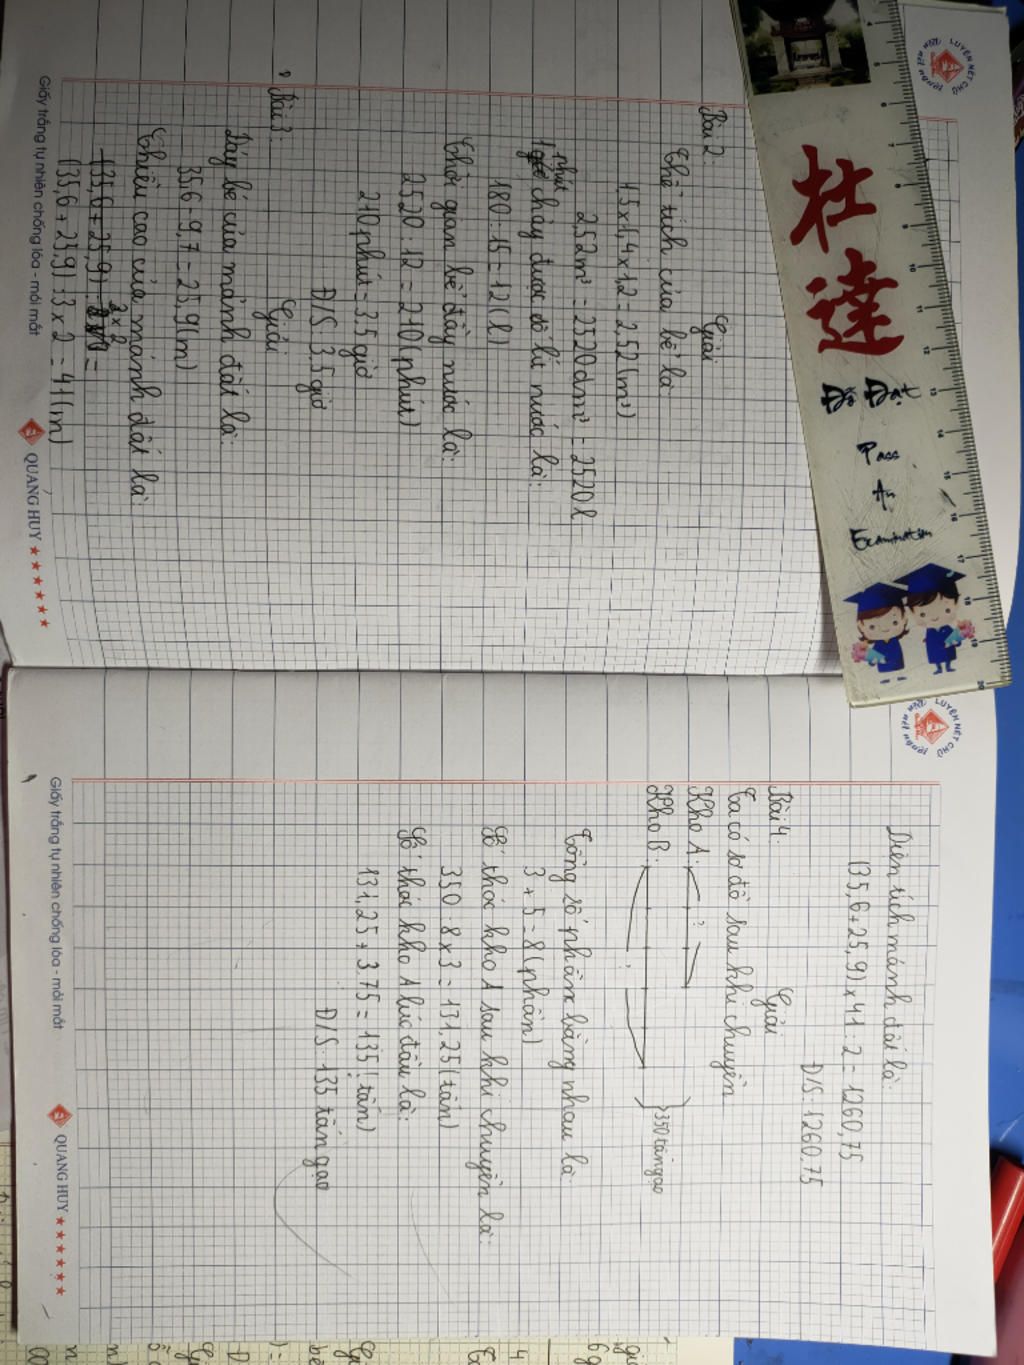 LUYỆN NÉT CHỮ
RÈN NẾT NGƯỜI
杜
達
Đỗ Đạt
Pass
An
Examination
Bài 2.
Giải
Thể tích của bể là:
1,5 x 1,4 x 1,2 = 2,52 (m³)
2,52m³ = 2520dm³ = 2520l
1 phút chảy được số lít nước là:
180 : 15 = 12 (l)
Thời gian bể đầy nước là:
2520 : 12 = 210 (phút)
210 phút = 3,5 giờ
Đ/S: 3,5 giờ
Bài 3:
Giải
Đáy bé của mảnh đất là:
35,6 - 9,7 = 25,9 (m)
Chiều cao của mảnh đất là:
(35,6 + 25,9) : 3 x 2 =
(35,6 + 25,9) : 3 x 2 = 41 (m)
Giấy trắng tự nhiên chống lóa - mỏi mắt
QUANG HUY
LUYỆN NÉT CHỮ
RÈN NẾT NGƯỜI
Diện tích mảnh đất là:
(35,6+25,9) x 41 : 2 = 1260,75
Đ/S: 1260,75
Bài 4.
Giải
Ta có sơ đồ sau khi chuyển
Kho A: ?
Kho B:
350 tấn gạo
Tổng số phần bằng nhau là:
3 + 5 = 8 (phần)
Số thóc kho A sau khi chuyển là:
350 : 8 x 3 = 131,25 (tấn)
Số thóc kho A lúc đầu là:
131,25 + 3,75 = 135 (tấn)
Đ/S: 135 tấn gạo
Giấy trắng tự nhiên chống lóa - mỏi mắt
QUANG HUY